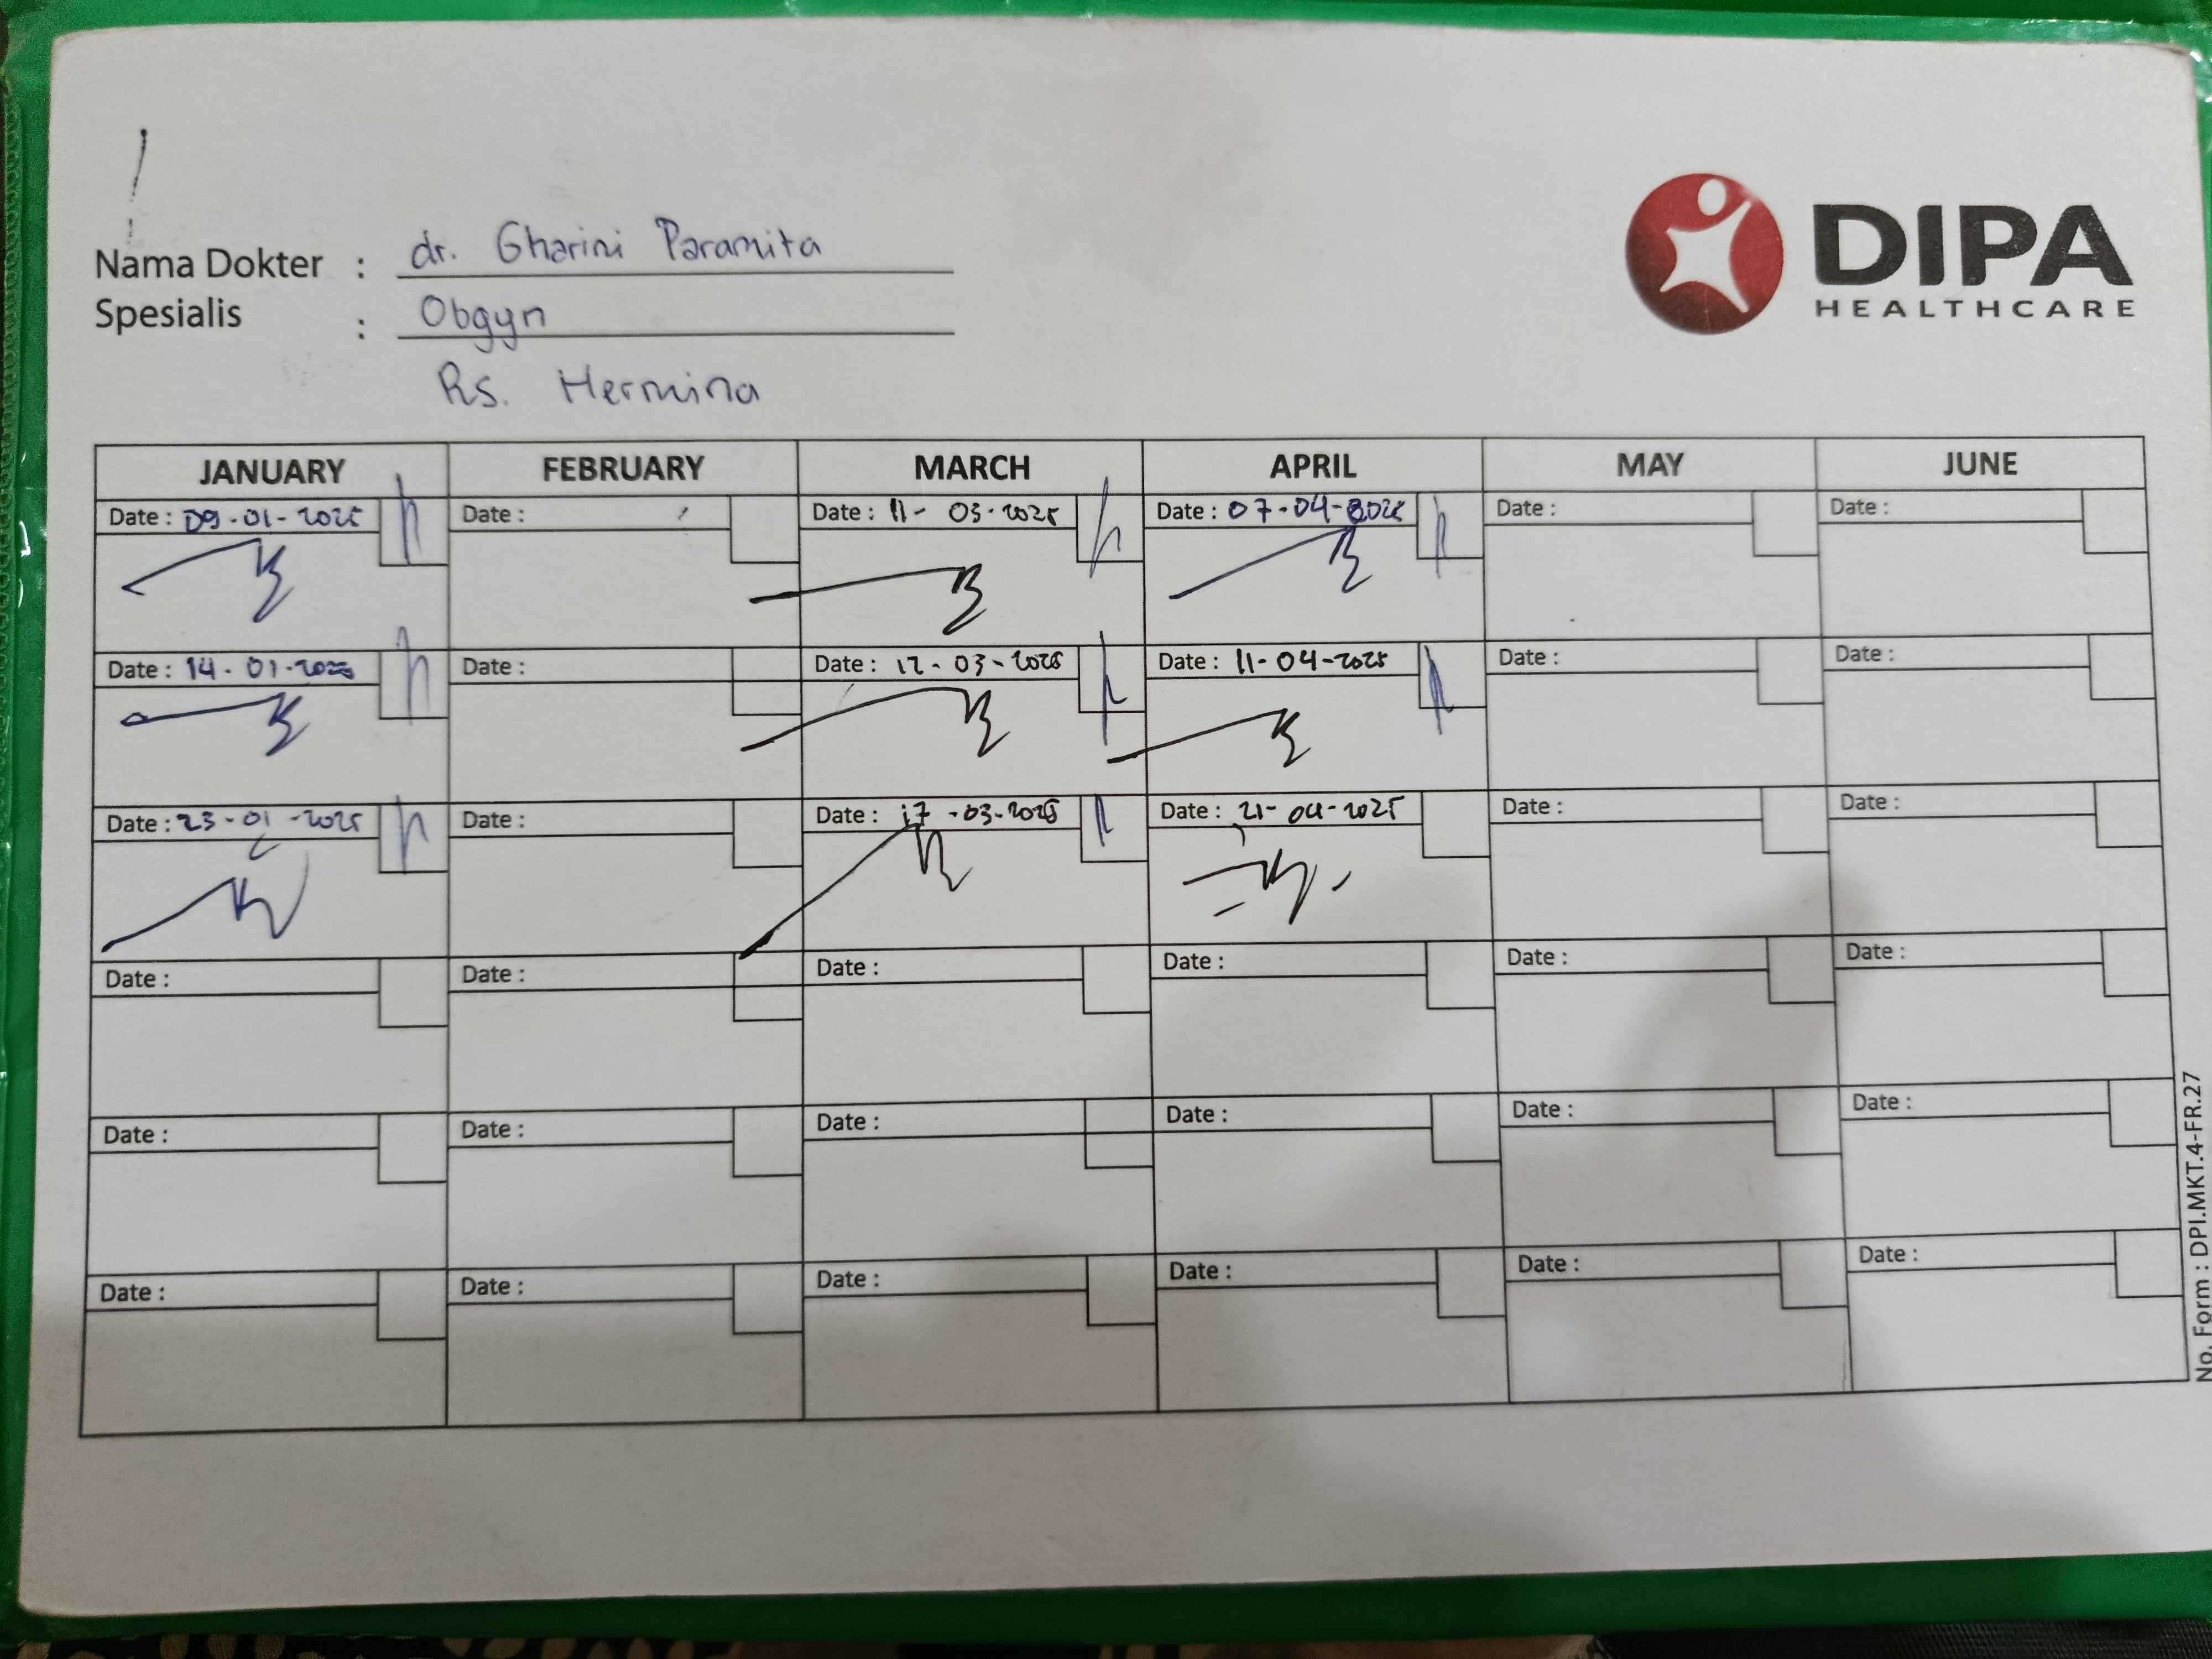 DIPA
HEALTHCARE
Nama Dokter : dr. Gharini Paramita
Spesialis : Obgyn
Rs. Hermina
JANUARY FEBRUARY MARCH APRIL MAY JUNE
Date : 09-01-2025 Date : Date : 11-03-2025 Date : 07-04-2025 Date : Date :
Date : 14-01-2025 Date : Date : 12-03-2025 Date : 11-04-2025 Date : Date :
Date : 23-01-2025 Date : Date : 17-03-2025 Date : 21-04-2025 Date : Date :
Date : Date : Date : Date : Date : Date :
Date : Date : Date : Date : Date : Date :
Date : Date : Date : Date : Date : Date :
No. Form : DPI.MKT.4-FR.27